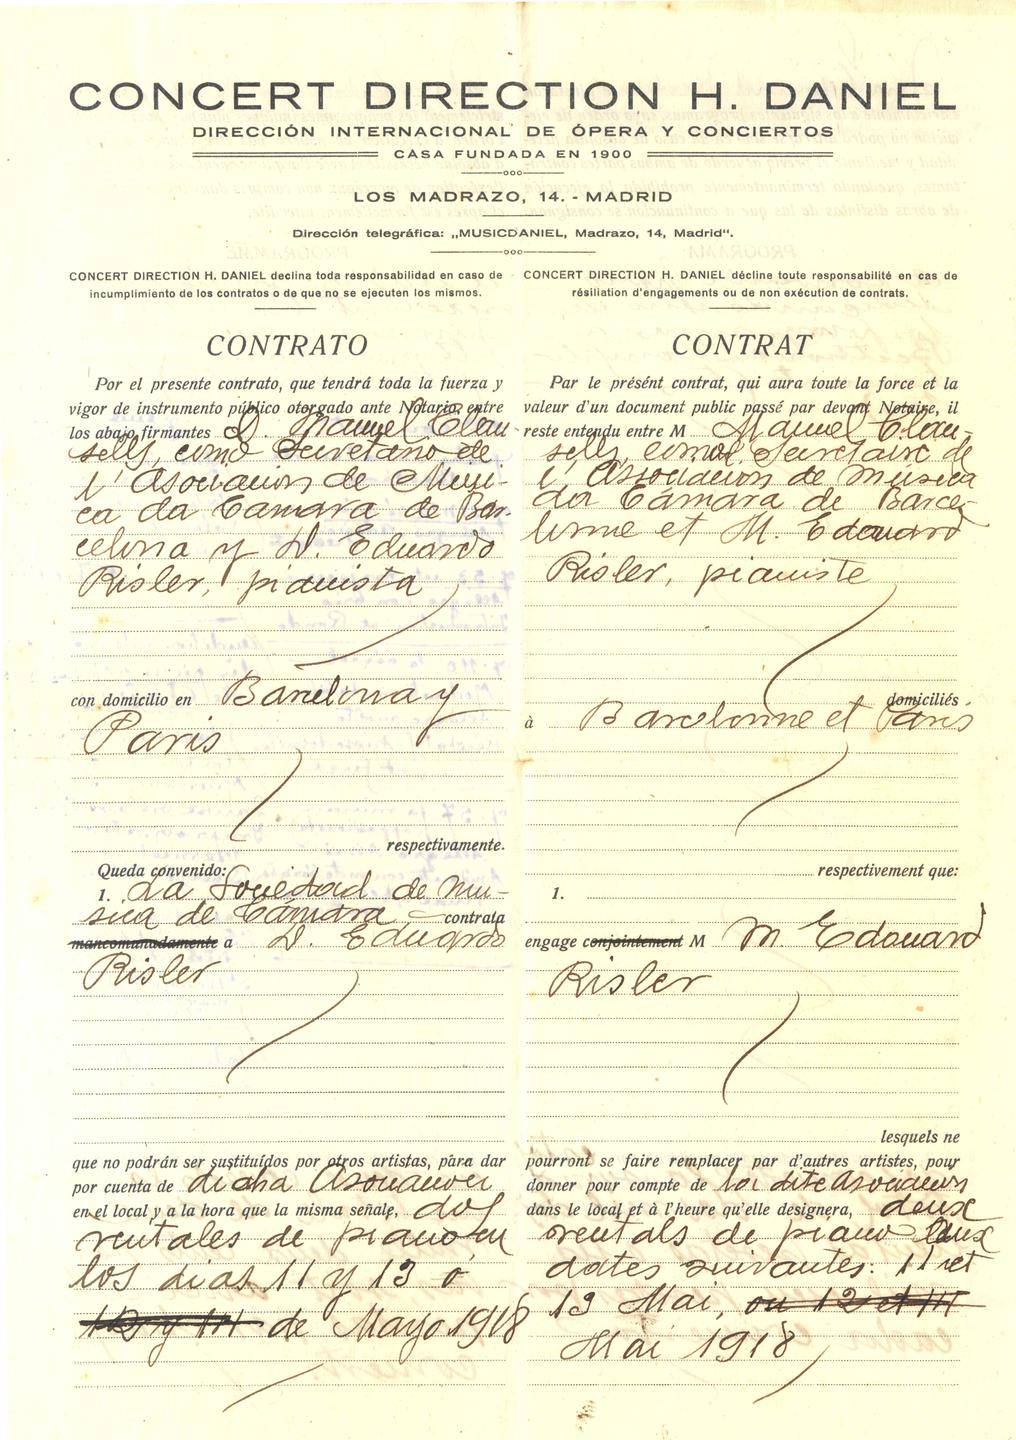 CONCERT DIRECTION H. DANIEL
DIRECCIÓN INTERNACIONAL DE ÓPERA Y CONCIERTOS
CASA FUNDADA EN 1900
LOS MADRAZO, 14. - MADRID
Dirección telegráfica: „MUSICDANIEL, Madrazo, 14, Madrid“.
CONCERT DIRECTION H. DANIEL declina toda responsabilidad en caso de
incumplimiento de los contratos o de que no se ejecuten los mismos.
CONTRATO
Por el presente contrato, que tendrá toda la fuerza y
vigor de instrumento público otorgado ante Notario, entre
los abajo firmantes D. Manuel Clau-
sells, como Secretario de
l'Asociacion de Musi-
ca da Cámara de Bar-
celona y D. Eduardo
Risler, pianista
con domicilio en Barcelona y
Paris
respectivamente.
Queda convenido:
1. La Sociedad de Mu-
sica de Cámara contrata
mancomunadamente a D. Eduardo
Risler
que no podrán ser sustituídos por otros artistas, para dar
por cuenta de dicha Asociacion
en el local y a la hora que la misma señale, dos
recitales de piano en
los dias 11 y 13 ó
12 y 14 de Mayo 1918
CONCERT DIRECTION H. DANIEL décline toute responsabilité en cas de
résiliation d'engagements ou de non exécution de contrats.
CONTRAT
Par le présént contrat, qui aura toute la force et la
valeur d'un document public passé par devant Notaire, il
reste entendu entre M Manuel Clau-
sells, comme Secretaire de
l'Asociacion de Musica
da Cámara de Barce-
lonne et M. Edouard
Risler, pianiste
domiciliés
à Barcelonne et Paris
respectivement que:
1.
engage conjointement M M Edouard
Risler
lesquels ne
pourront se faire remplacer par d'autres artistes, pour
donner pour compte de la dite Asociacion
dans le local et à l'heure qu'elle designera, deux
recitals de piano
dates suivantes: 11 et
13 Mai, ou 12 et 14
Mai 1918